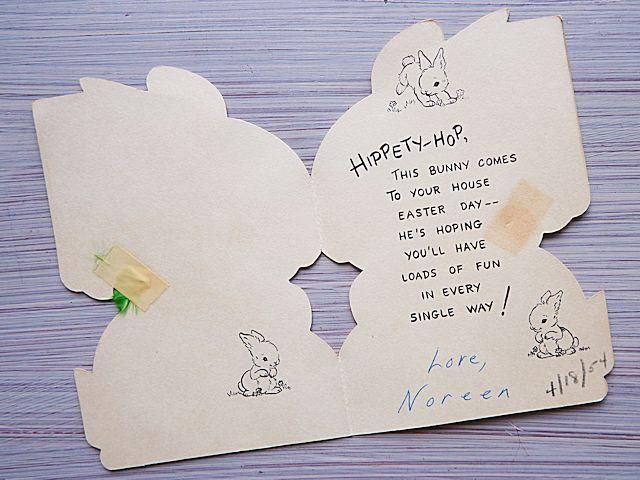 HIPPETY-HOP,
THIS BUNNY COMES
TO YOUR HOUSE
EASTER DAY--
HE'S HOPING
YOU'LL HAVE
LOADS OF FUN
IN EVERY
SINGLE WAY!
Love,
Noreen
4/18/54